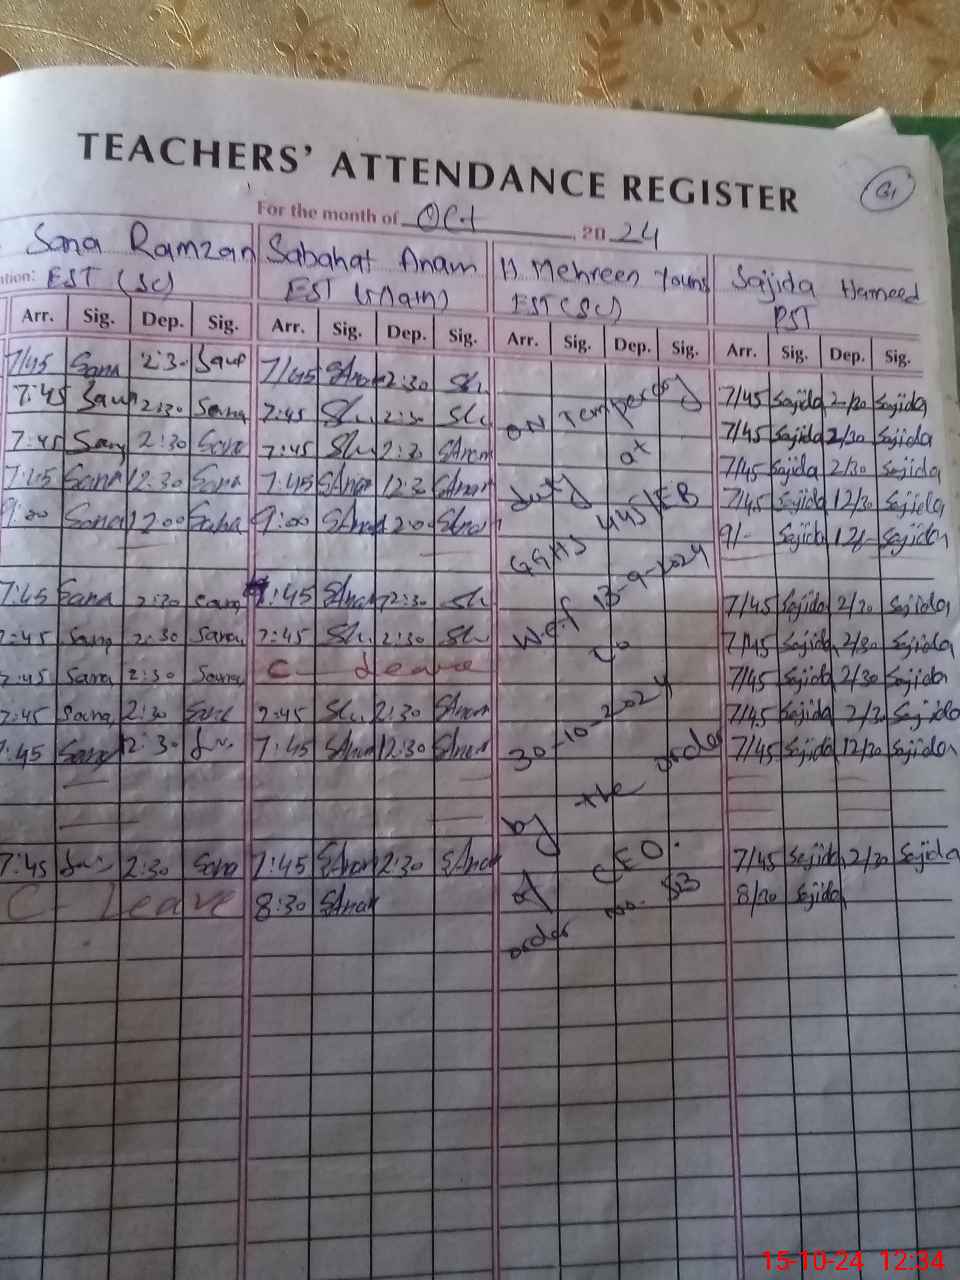 TEACHERS' ATTENDANCE REGISTER
G1
For the month of Oct, 2024
Sana Ramzan Sabahat Anam H Mehreen Youns Sajida Hameed
tion: EST (SC) EST EST (SC) PST
Arr. Sig. Dep. Sig. Arr. Sig. Dep. Sig. Arr. Sig. Dep. Sig. Arr. Sig. Dep. Sig.
7/45 Sana 2:30 7/45 SAnam 2:30 Sh 7/45 Sajida 2/30 Sajida
7:45 2:30 Sana 7:45 Sh 2:30 Sh 7/45 Sajida 2/30 Sajida
7:45 Sana 2:30 Sana 7:45 Sh 2:30 SAnam 7/45 Sajida 2/30 Sajida
7:45 Sana 12:30 Sana 7:45 SAnam 12:30 SAnam 7/45 Sajida 12/30 Sajida
9:00 Sana 12:00 Sana 9:00 SAnam 12:00 SAnam 9/- Sajida 12/- Sajida
7:45 Sana 2:30 Sana 7:45 SAnam 2:30 Sh 7/45 Sajida 2/30 Sajida
7:45 Sana 2:30 Sana 7:45 Sh 2:30 Sh 7/45 Sajida 2/30 Sajida
7:45 Sana 2:30 Sana C- Leave 7/45 Sajida 2/30 Sajida
7:45 Sana 2:30 7:45 Sh 2:30 SAnam 7/45 Sajida 2/30 Sajida
7:45 Sana 12:30 7:45 SAnam 12:30 SAnam 7/45 Sajida 12/30 Sajida
7:45 2:30 Sana 7:45 SAnam 2:30 SAnam 7/45 Sajida 2/30 Sajida
C- Leave 8:30 SAnam 8/30 Sajida
ON Temperory
duty at
GGHS 445/EB
w.e.f 13-9-2024
to
30-10-2024
by the order
of CEO.
order no. 53
15-10-24 12:34